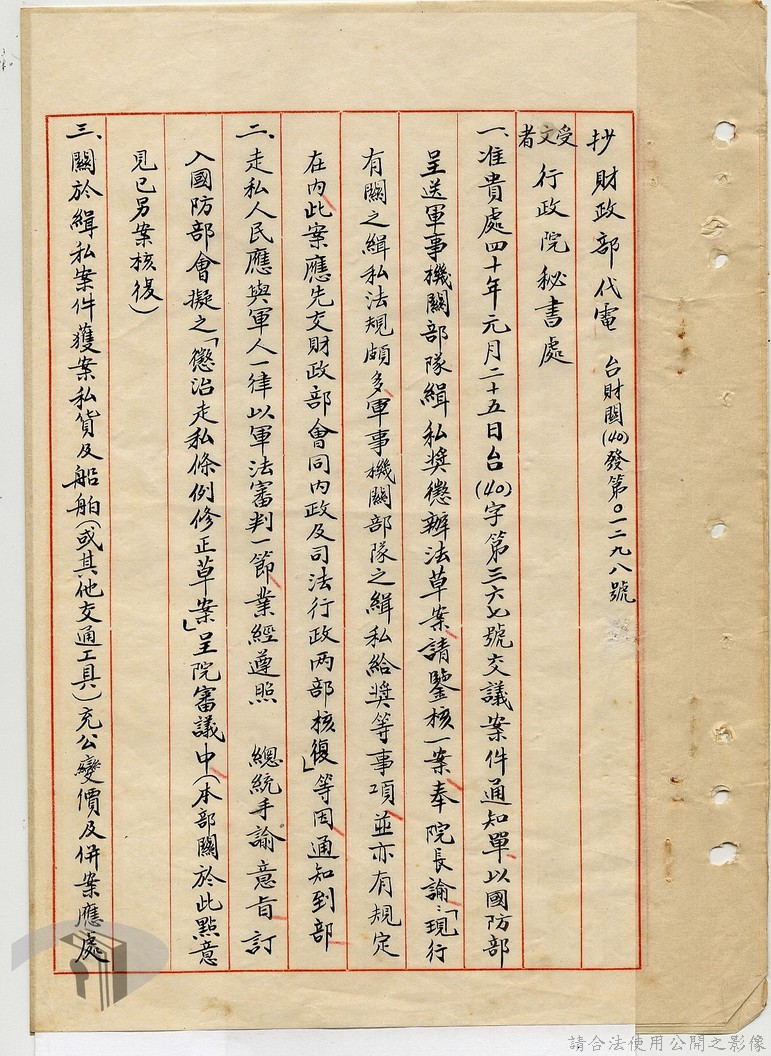 抄財政部代電　台財關(40)發第０一二九八號
受文者　行政院秘書處
一、准貴處四十年元月二十五日台(40)字第三六七號交議案件通知單以國防部
呈送軍事機關部隊緝私獎懲辦法草案請鑒核一案奉　院長諭：「現行
有關之緝私法規頗多軍事機關部隊之緝私給獎等事項並亦有規定
在內此案應先交財政部會同內政及司法行政兩部核復」等因通知到部
二、走私人民應與軍人一律以軍法審判一節業經遵照　總統手諭意旨訂
入國防部會擬之「懲治走私條例修正草案」呈院審議中(本部關於此點意
見已另案核復)
三、關於緝私案件獲案私貨及船舶(或其他交通工具)充公變價及併案應處
請合法使用公開之影像